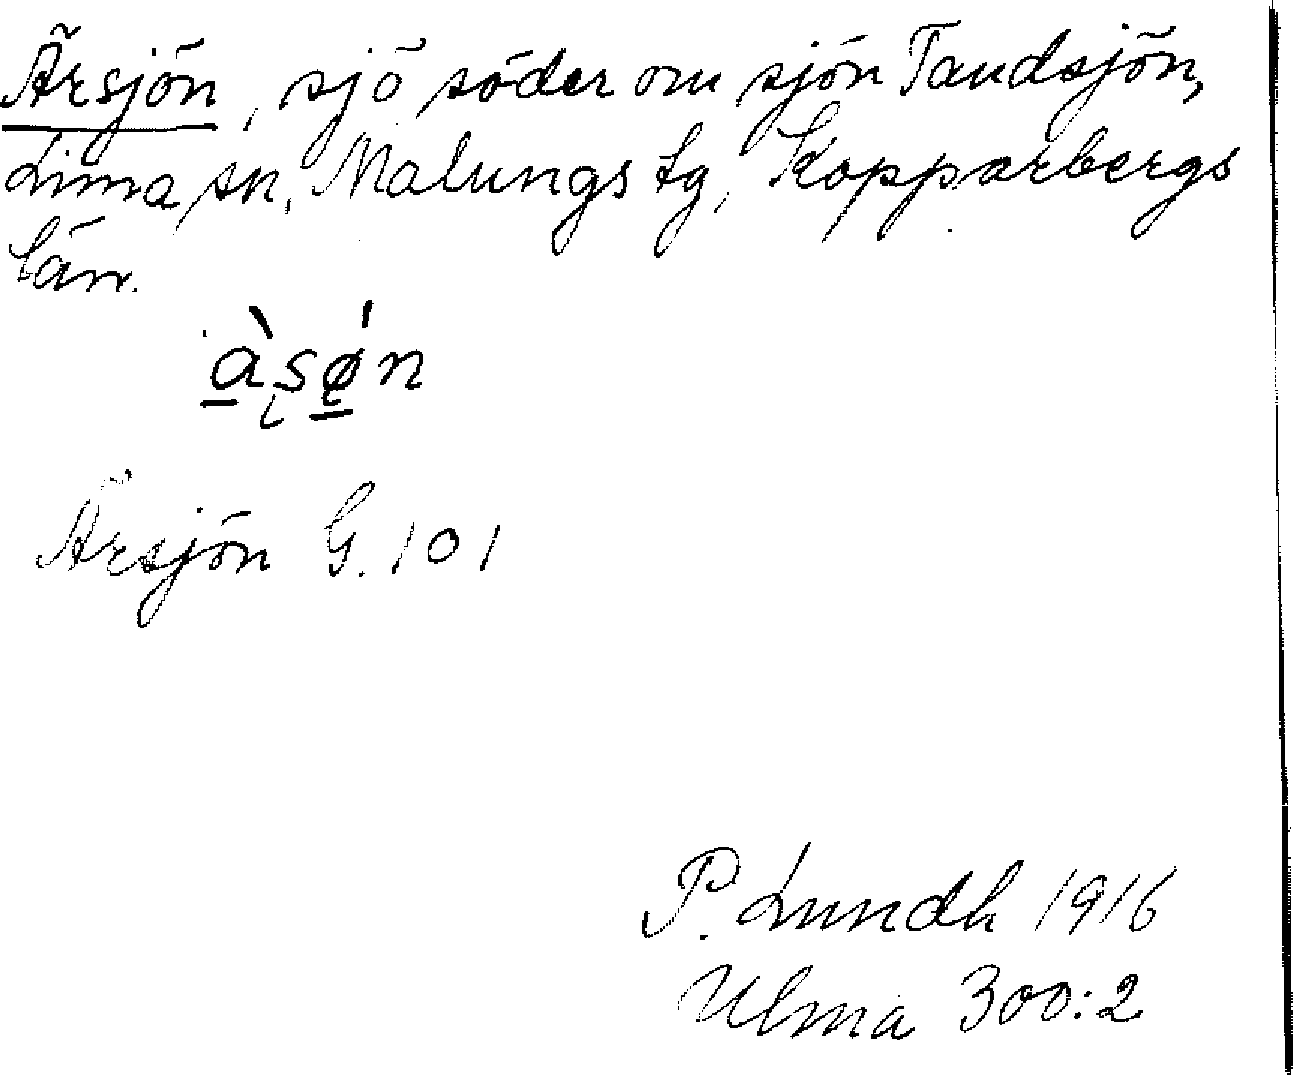 Ärsjön, sjö söder om sjön Tandsjön,
Lima sn, Malungs tg, Kopparbergs
län.
Ärsjön G. 101
P. Lundh 1916
Ulma 300:2